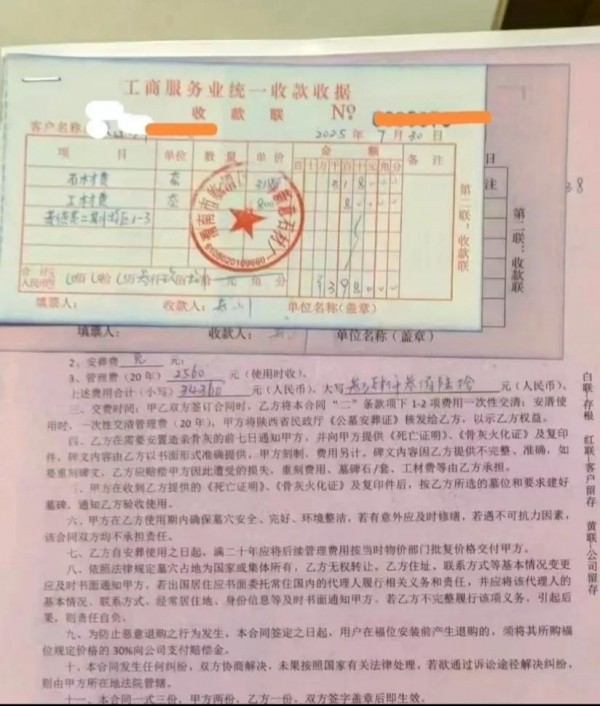 工商服务业统一收款收据
收款联 №
客户名称
2025 年 7 月 30 日
项目 单位 数量 单价 金额 备注
百十万千百十元角分
石水才费 套 318
工本才费 套 800
第二联:收款联
填票人: 收款人: 单位名称(盖章)
日
注
第二联:收款联
38
填票人: 收款人: 单位名称(盖章)
2、安葬费 免 元;
3、管理费(20年) 2560 元(使用时收)。
上述费用合计(小写) 34360 元(人民币),大写 叁万肆仟叁佰陆拾 元(人民币)。
三、交费时间:甲乙双方签订合同时,乙方将本合同“二”条款项下1-2项费用一次性交清;安厝使
用时,一次性交清管理费(20年),甲方将陕西省民政厅《公墓安葬证》核发给乙方,以示乙方权益。
四、乙方在需要安置亲骨灰的前七日通知甲方,并向甲方提供《死亡证明》、《骨灰火化证》及复印
件,碑文内容由乙方以书面形式准确提供,甲方刻制,费用另计,碑文内容因乙方提供不完整、准确,如
要重刻碑文,乙方应赔偿甲方因此遭受的损失,重刻费用、墓碑石/套、工材费等由乙方承担。
、甲方在收到乙方提供的《死亡证明》、《骨灰火化证》及复印件后,按乙方所选的墓位和要求建好
墓碑,通知乙方验收使用。
六、甲方在乙方使用期内确保墓穴安全、完好、环境整洁,若有意外应及时修缮,若遇不可抗力因素,
该合同双方均不承担责任。
七、乙方自安葬使用之日起,满二十年应将后续管理费用按当时物价部门批复价格交付甲方。
八、依照法律规定墓穴占地为国家或集体所有,乙方无权转让,乙方住址、联系方式等基本情况变更
应及时书面通知甲方,若出国居住应书面委托常住国内的代理人履行相关义务和责任,并应将该代理人的
基本情况、联系方式、经常居住地、身份信息等及时书面通知甲方,若乙方不完整履行该项义务,引起后
果,则责任自负。
九、为防止恶意退购之行为发生,本合同签定之日起,用户在福位安装前产生退购的,须将其所购福
位规定价格的30%向公司支付赔偿金。
十、本合同发生任何纠纷,双方协商解决,未果按照国家有关法律处理,若欲通过诉讼途径解决纠纷,
则由甲方所在地法院管辖。
十一、本合同一式三份,甲方两份,乙方一份,双方签字盖章后即生效。
白联-存根 红联-客户留存 黄联-公司留存